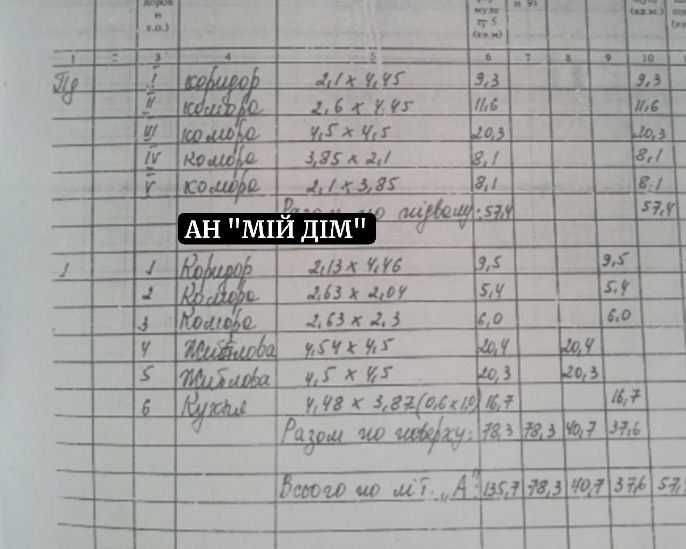 доров
и
т.о.)
муле
гр 5
(кв.м)
(кв.м.)
1 2 3 4 5 6 7 8 9 10
Пд I коридор 2,1 x 4,45 9,3 9,3
II комора 2,6 x 4,45 11,6 11,6
III комора 4,5 x 4,5 20,3 20,3
IV комора 3,85 x 2,1 8,1 8,1
V комора 2,1 x 3,85 8,1 8,1
Разом по підвалу: 57,4 57,4
АН "МІЙ ДІМ"
1 1 Коридор 2,13 x 4,46 9,5 9,5
2 Комора 2,63 x 2,04 5,4 5,4
3 Комора 2,63 x 2,3 6,0 6,0
4 Житлова 4,54 x 4,5 20,4 20,4
5 Житлова 4,5 x 4,5 20,3 20,3
6 Кухня 4,48 x 3,87 (0,6 x 1,0) 16,7 16,7
Разом по поверху: 78,3 78,3 40,7 37,6
Всього по літ. „А" 135,7 78,3 40,7 37,6 57,